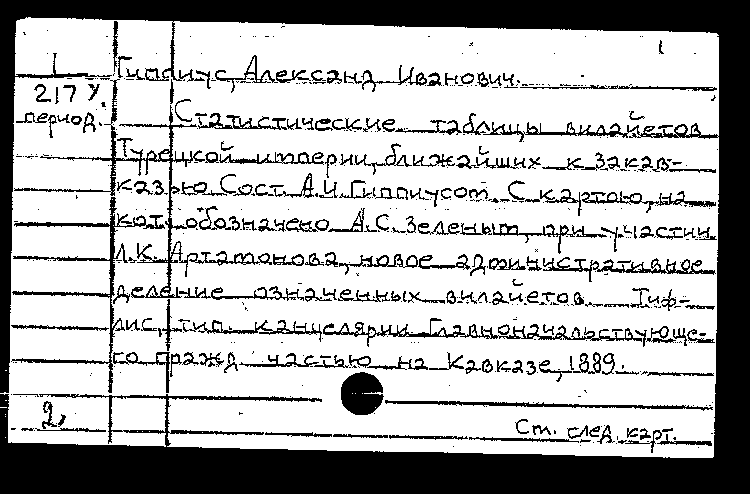 1
1 Гиппиус, Александ Иванович.
217 у.
период. Статистические таблицы вилайетов
Турецкой империи, ближайших к Закав-
казью. Сост. А.И. Гиппиусом. С картою, на
кот. обозначено А.С. Зеленым, при участии
Л.К. Артамонова, новое административное
деление означенных вилайетов. Тиф-
лис, тип. канцелярии Главноначальствующе-
го гражд. частью на Кавказе, 1889.
2,
См. след. карт.